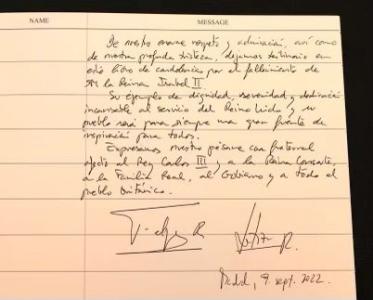 NAME MESSAGE
De nuestro enorme respeto y admiración, así como
de nuestra profunda tristeza, dejamos testimonio en
este libro de condolencias por el fallecimiento de
SM la Reina Isabel II.
Su ejemplo de dignidad, serenidad y dedicación
incansable al servicio del Reino Unido y su
pueblo será para siempre una gran fuente de
inspiración para todos.
Expresamos nuestro pésame con fraternal
afecto al Rey Carlos III y a la Reina Consorte,
a la Familia Real, al Gobierno y a todo el
pueblo británico.
Felipe R. Letizia R.
Madrid, 9. sept. 2022.